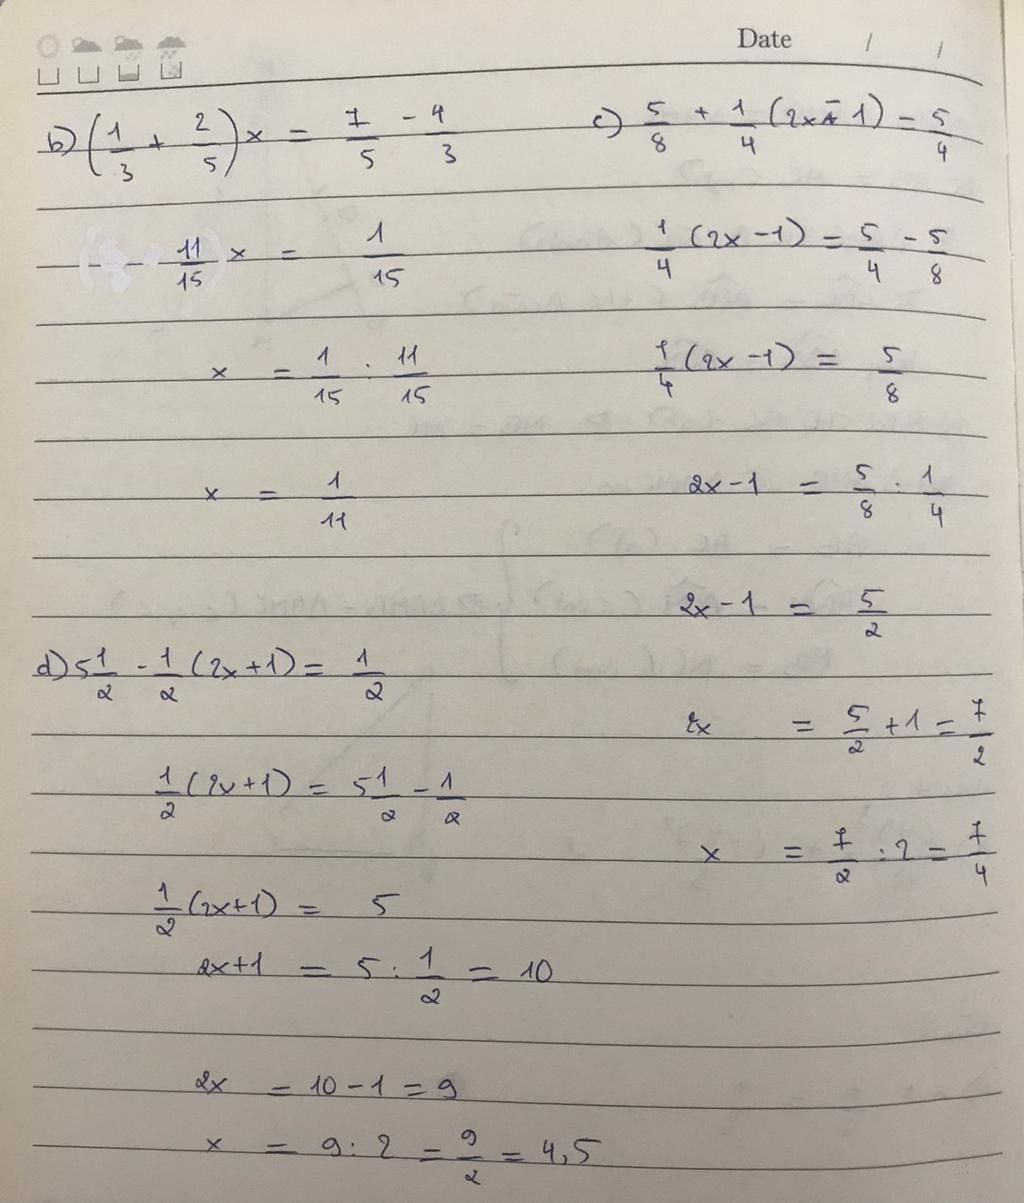 Date / /
b) (1/3 + 2/5) x = 7/5 - 4/3
11/15 x = 1/15
x = 1/15 : 11/15
x = 1/11
c) 5/8 + 1/4 (2x - 1) = 5/4
1/4 (2x - 1) = 5/4 - 5/8
1/4 (2x - 1) = 5/8
2x - 1 = 5/8 : 1/4
2x - 1 = 5/2
2x = 5/2 + 1 = 7/2
x = 7/2 : 2 = 7/4
d) 5 1/2 - 1/2 (2x + 1) = 1/2
1/2 (2x + 1) = 5 1/2 - 1/2
1/2 (2x + 1) = 5
2x + 1 = 5 : 1/2 = 10
2x = 10 - 1 = 9
x = 9 : 2 = 9/2 = 4,5